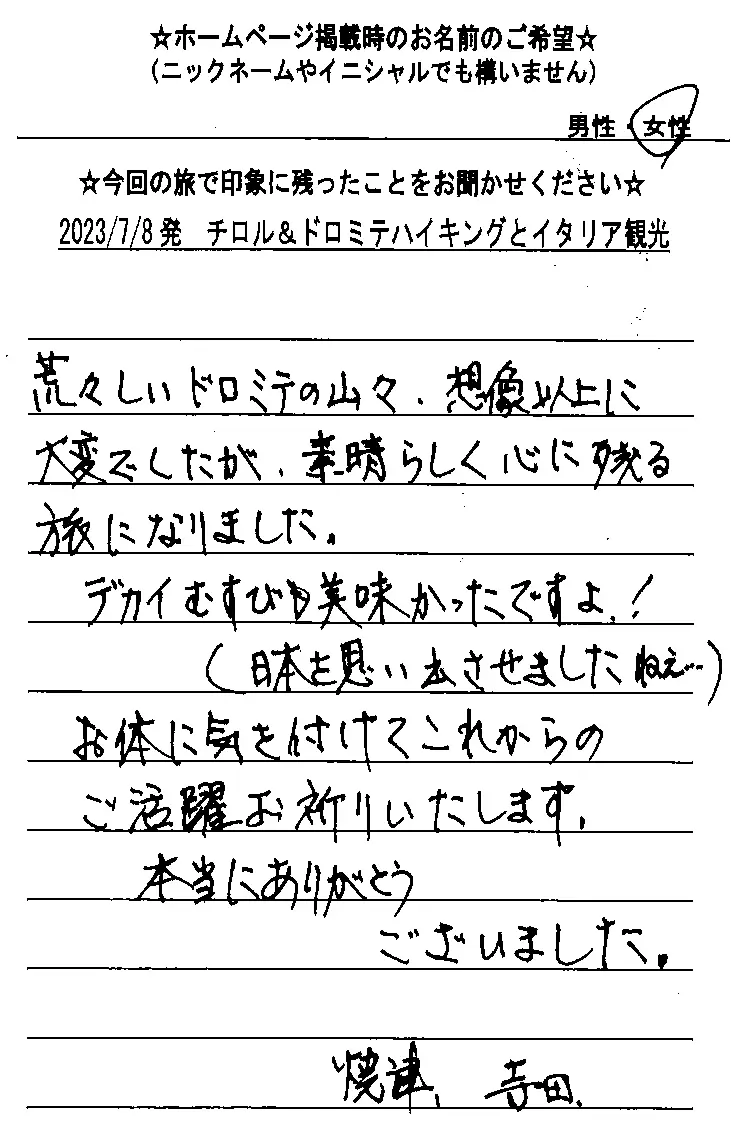 ☆ホームページ掲載時のお名前のご希望☆
(ニックネームやイニシャルでも構いません)
男性・女性
☆今回の旅で印象に残ったことをお聞かせください☆
2023/7/8発　チロル＆ドロミテハイキングとイタリア観光
荒々しいドロミテの山々、想像以上に
大変でしたが、素晴らしく心に残る
旅になりました。
デカイむすびも美味かったですよ!
(日本を思い出させましたねぇ…)
お体に気を付けてこれからの
ご活躍お祈りいたします。
本当にありがとう
ございました。
焼津、寺田、